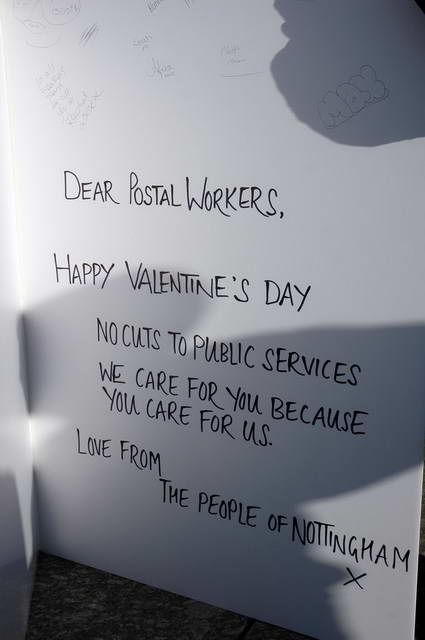 DEAR POSTAL WORKERS,
HAPPY VALENTINE'S DAY
NO CUTS TO PUBLIC SERVICES
WE CARE FOR YOU BECAUSE
YOU CARE FOR US.
LOVE FROM
THE PEOPLE OF NOTTINGHAM
X